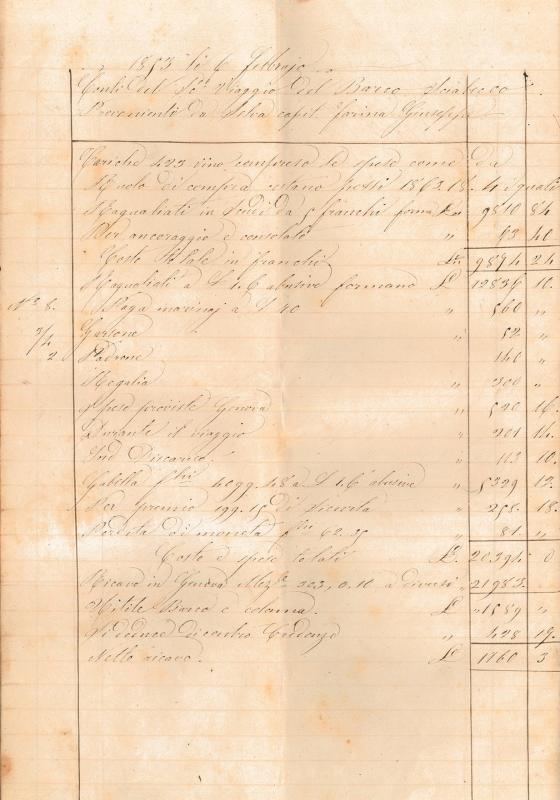 1853 li 6 Febbrajo
Conti del 1o Viaggio del Barco Sciabecco
Provenienti da Selva capit. Farina Giuseppe
Cariche 423 vino compreso le spese come da
Ruolo di compra costano pesti 1862.18. 4 i quali
Ragualiati in Scudi da 5 franchi forma 9810 84
Per ancoraggio e consolato " 63 40
Costo totale in franchi 9874 24
Ragualiati a L 1.6 abusive formano L 12836 10.
No 8. Paga marinaj a L 70 " 560 "
3/4 Garzone " 52 "
2 Padrone " 140 "
Regalia " 200 "
Spese proviste Genova " 520 16.
Durante il viaggio " 201 14.
Discarico " 113 10.
Gabella fchi 4099.48 a L 1.6 abusive " 5329 12.
Per premio di sicurtà " 258. 18.
Perdita di moneta fchi 62.35 " 81. "
Costo e spese totali L. 20394 0
Ricavo in Genova Mez.le 323, 0.10 a diversi " 21983. "
Utile Barco e colonna. L " 1589 "
Si deduce di contro Credenze " 428 19.
Netto ricavo. L 1160 3